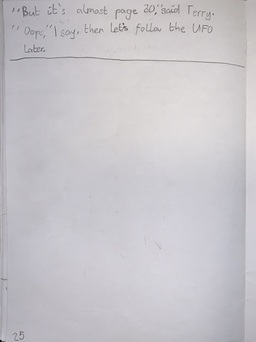 "But it's almost page 30," said Terry.
"Oops," I say, then let's follow the UFO
Later.
25